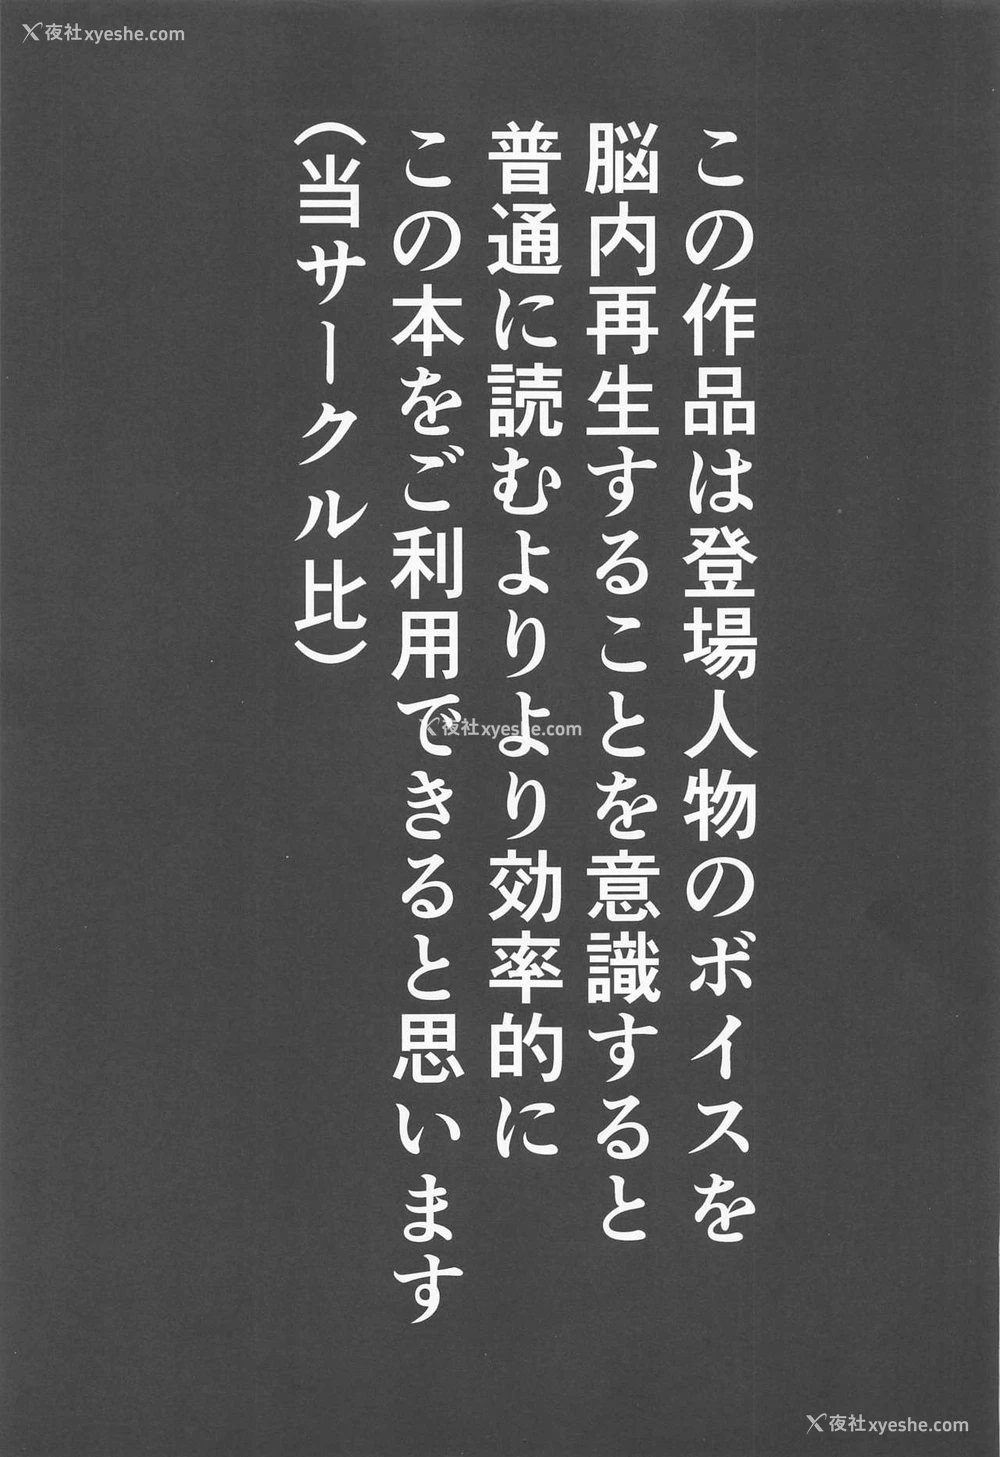 X夜社xyeshe.com
この作品は登場人物のボイスを
脳内再生することを意識すると
普通に読むよりより効率的に
この本をご利用できると思います
（当サークル比）
X夜社xyeshe.com
X夜社xyeshe.com